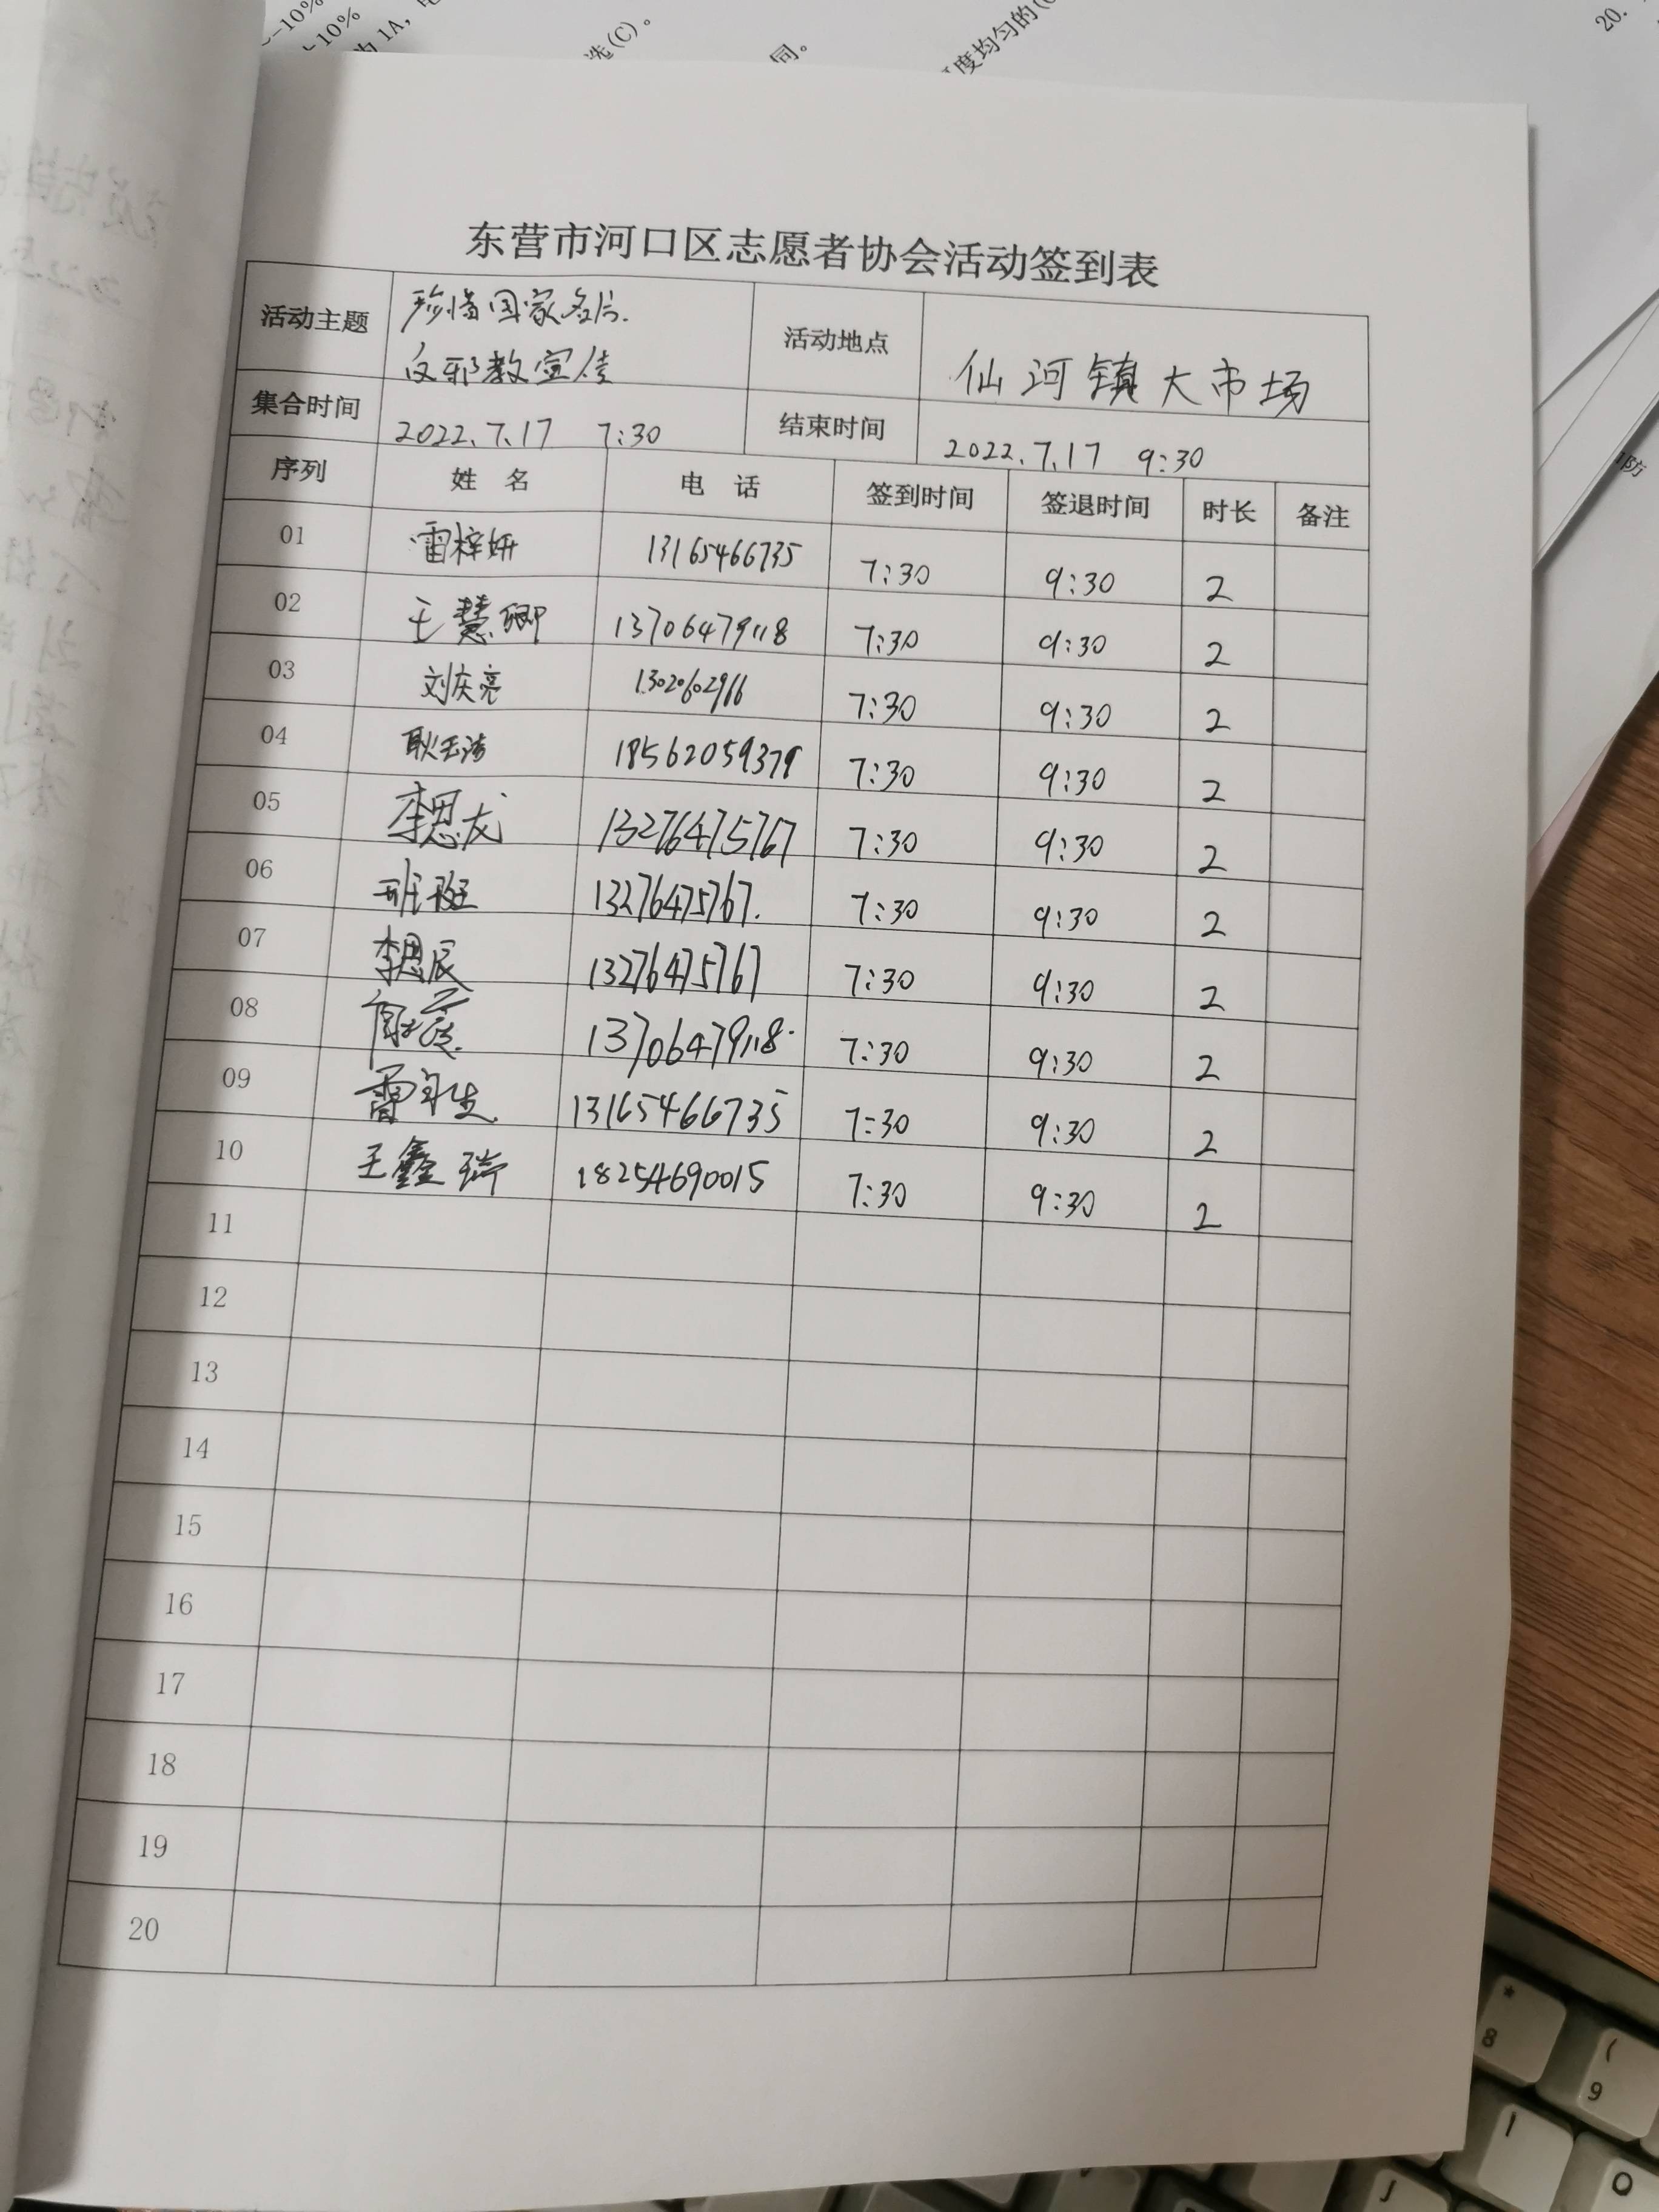 ~-10%
~-10%
为 1A,
选(C)。
同。
度均匀的(C
20.
东营市河口区志愿者协会活动签到表
活动主题 珍惜国家名片. 反邪教宣传 活动地点 仙河镇大市场
集合时间 2022.7.17 7:30 结束时间 2022.7.17 9:30
序列 姓 名 电 话 签到时间 签退时间 时长 备注
01 雷梓妍 13165466735 7:30 9:30 2
02 王慧卿 13706479118 7:30 9:30 2
03 刘庆亮 7:30 9:30 2
04 耿玉涛 18562059379 7:30 9:30 2
05 李思龙 13276475767 7:30 9:30 2
06 班班 13276475767. 7:30 9:30 2
07 李思辰 13276475767 7:30 9:30 2
08 13706479118. 7:30 9:30 2
09 13165466735 7:30 9:30 2
10 王鑫瑞 18254690015 7:30 9:30 2
11
12
13
14
15
16
17
18
19
20
* 8
( 9
I
O
J